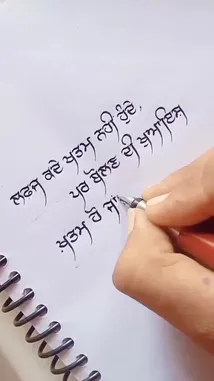 ਲਫਜ ਕਦੇ ਖ਼ਤਮ ਨਹੀ ਹੁੰਦੇ,
ਪਰ ਬੋਲਣ ਦੀ ਖ਼ੁਆਇਸ਼
ਖ਼ਤਮ ਹੋ ਜਾ